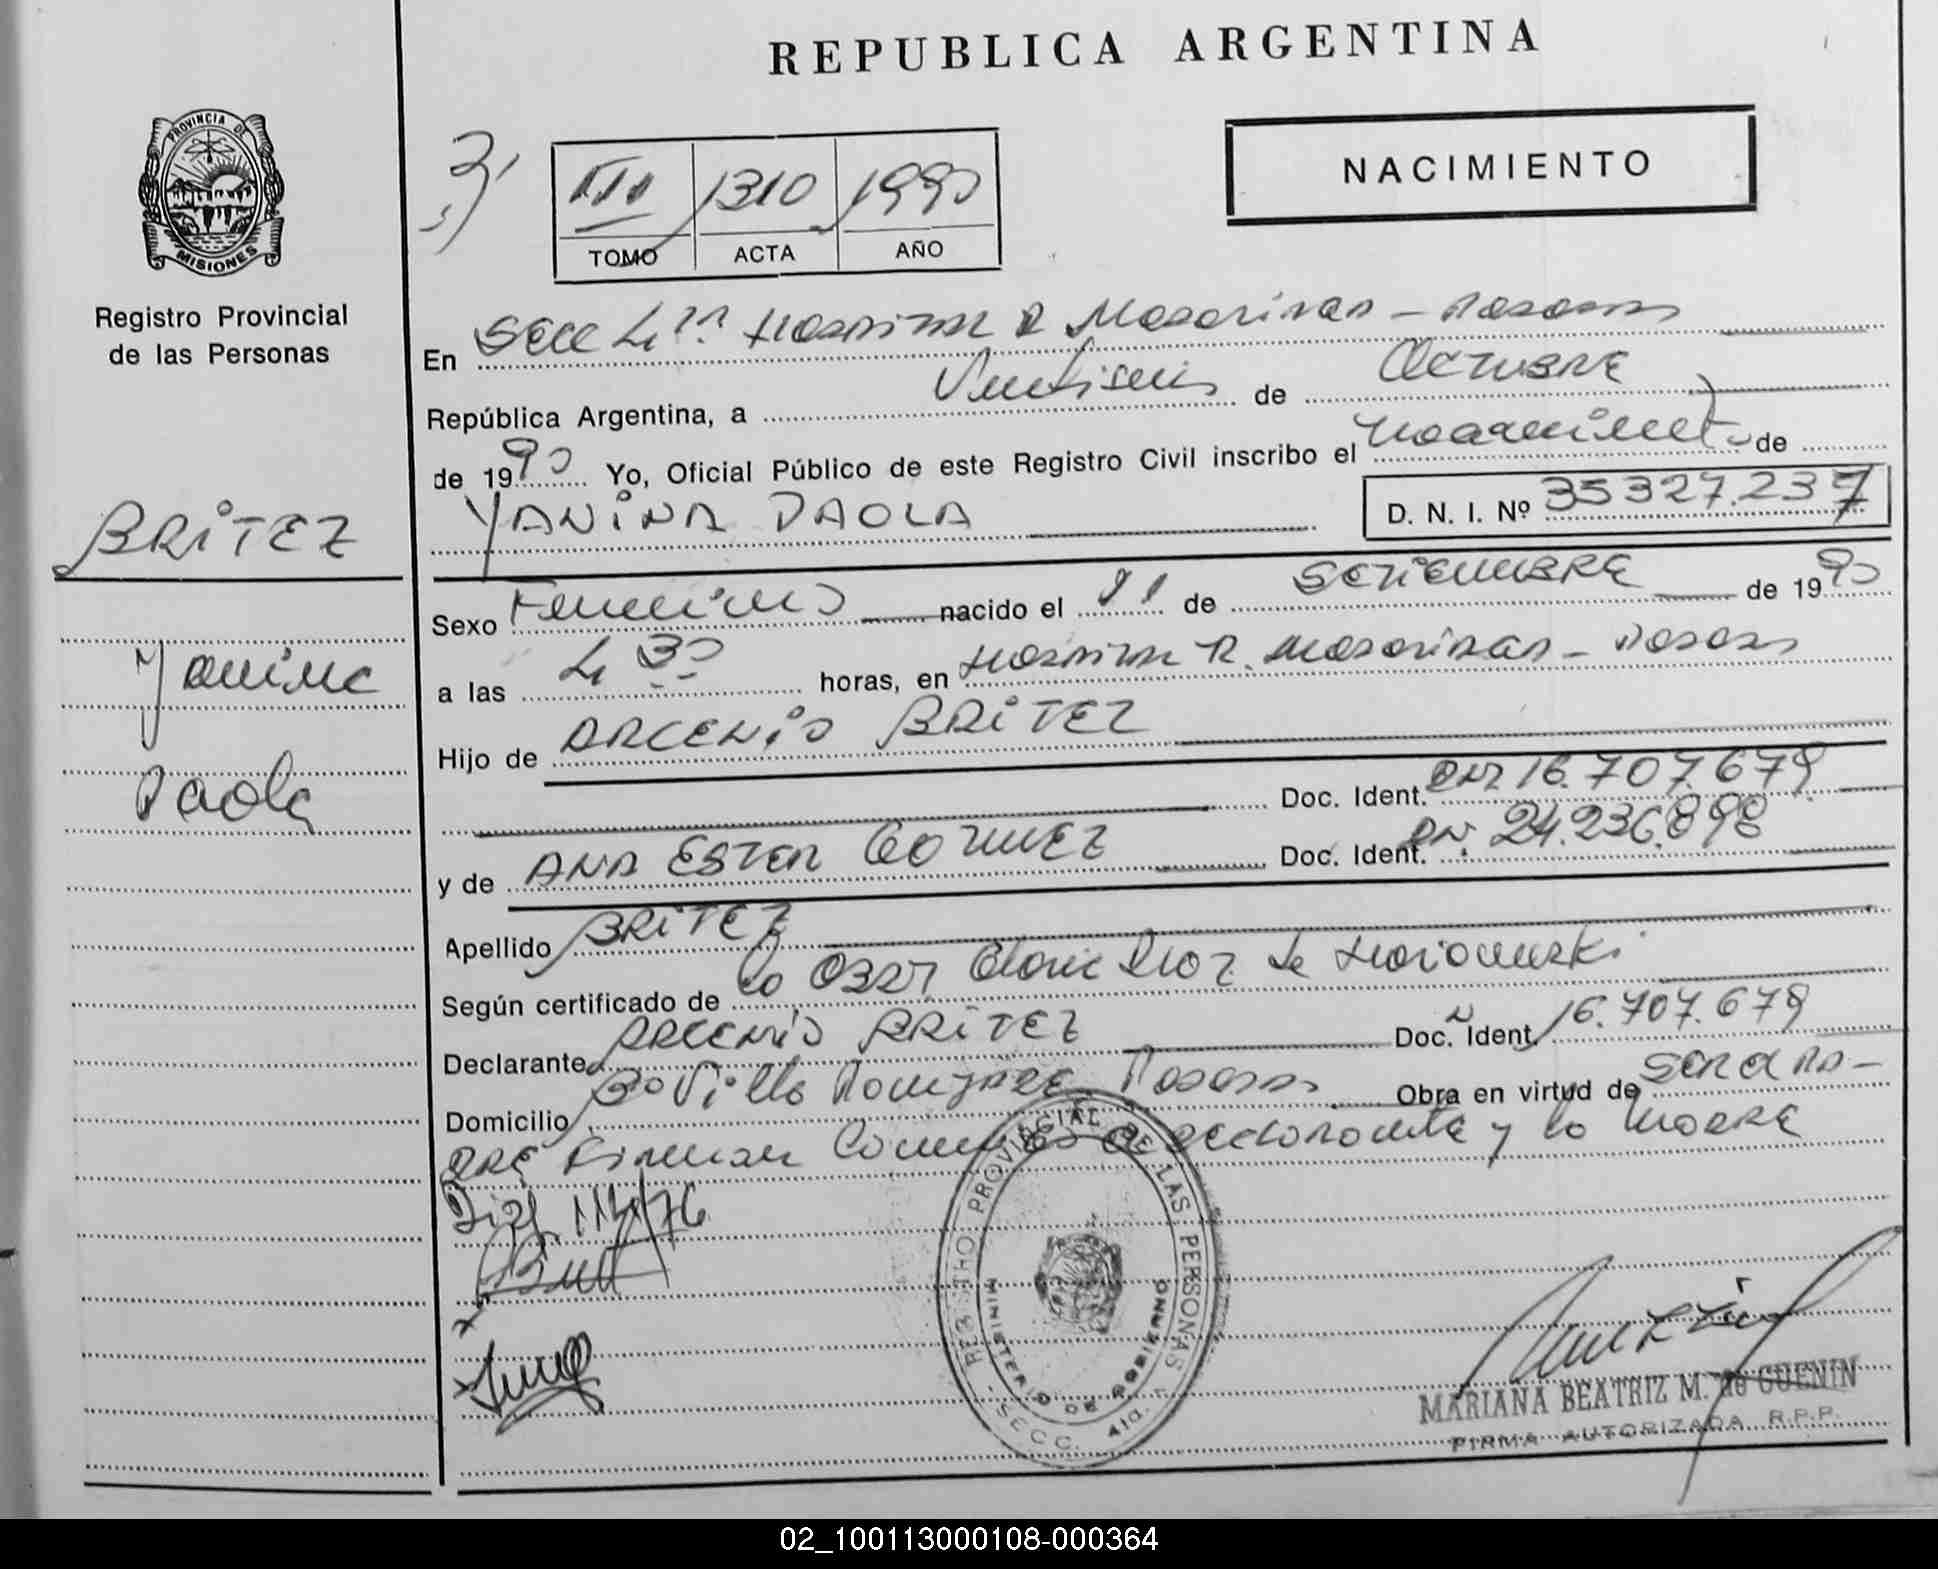 REPUBLICA ARGENTINA
PROVINCIA DE
MISIONES
Registro Provincial
de las Personas
NACIMIENTO
III 1310 1990
TOMO ACTA AÑO
En Secc 4ta Hospital R Madariaga - Posadas
República Argentina, a Veintiseis de Octubre
de 1990 Yo, Oficial Público de este Registro Civil inscribo el Nacimiento de
YANINA PAOLA D. N. I. Nº 35327.237
BRITEZ
Yanina
Paola
Sexo Femenino nacido el 21 de SETIEMBRE de 1990
a las 4 30 horas, en Hospital R. Madariaga - Posadas
Hijo de ARCENIO BRITEZ
Doc. Ident. DNI 16.707.679
y de ANA ESTER GOMEZ Doc. Ident. DNI 24.236.898
Apellido BRITEZ
Según certificado de la Obst Gloria Diaz de
Declarante ARCENIO BRITEZ Doc. Ident. 16.707.679
Domicilio Bo Villa Posadas Obra en virtud de ser el Pa-
dre Firman Conmigo el declarante y la Madre
REGISTRO PROVINCIAL DE LAS PERSONAS
MINISTERIO DE GOBIERNO
SECC. 4ta.
MARIANA BEATRIZ M. de GUENIN
FIRMA AUTORIZADA R.P.P.
02_100113000108-000364